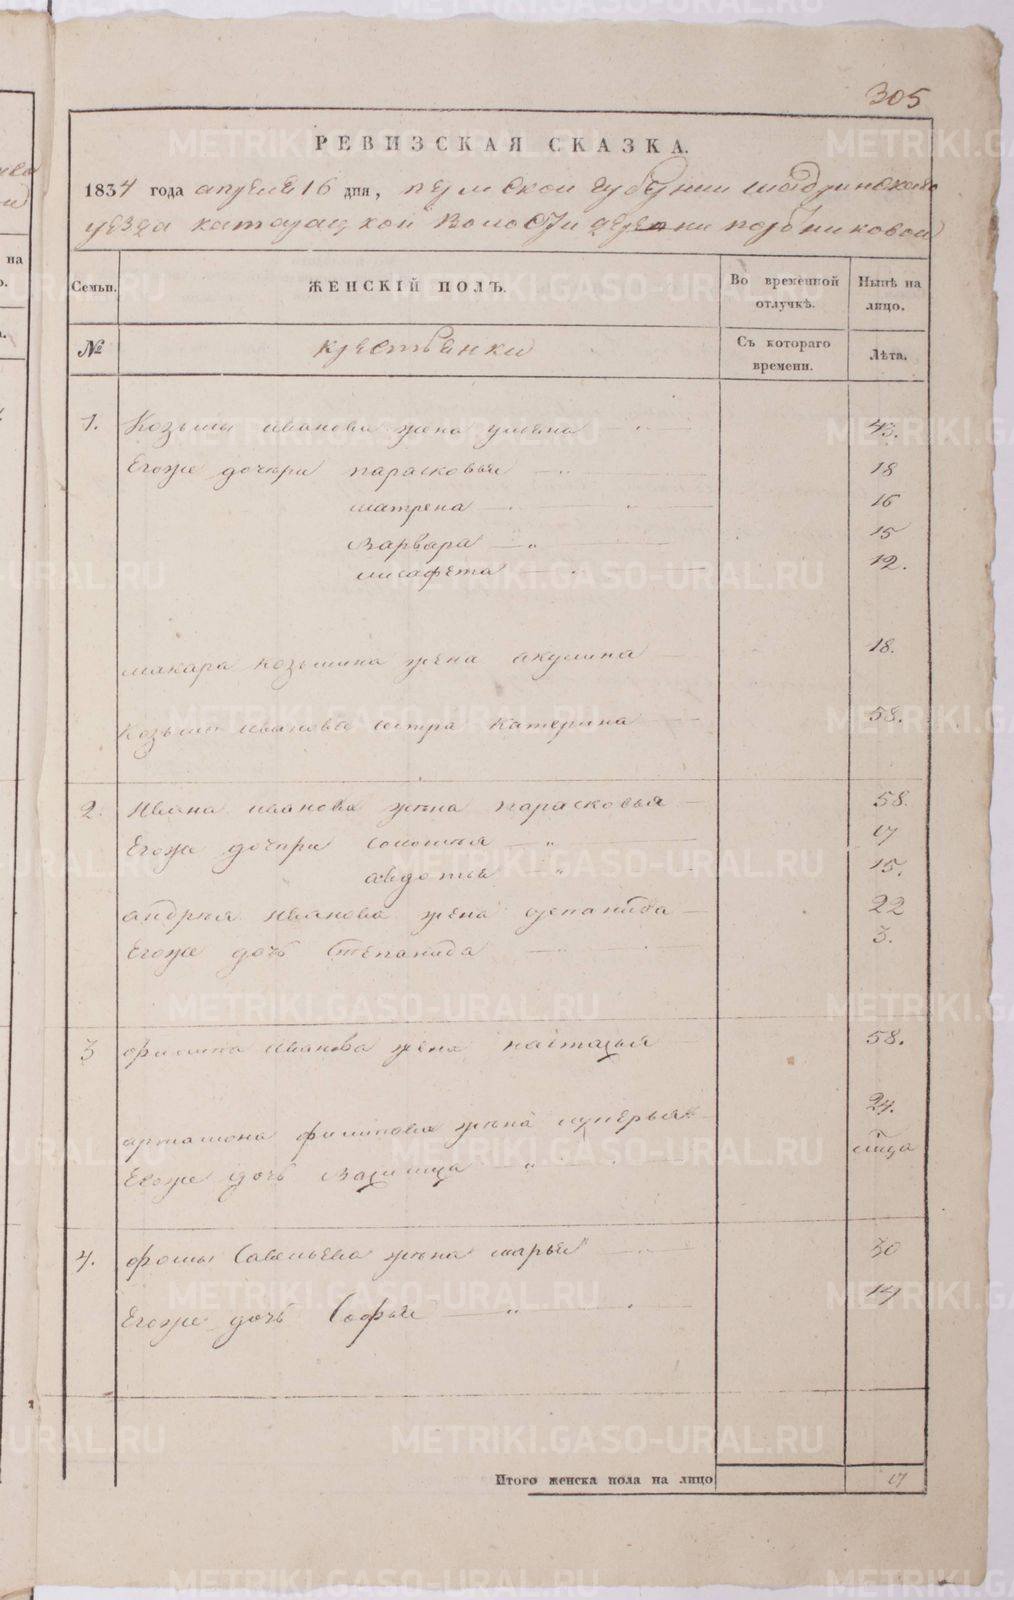 305
РЕВИЗСКАЯ СКАЗКА.
1834 года апреля 16 дня, пермской губернии шадринскаго
уезда катарацкой волости деревни
Семьи. ЖЕНСКІЙ ПОЛЪ. Во временной отлучкѣ. Нынѣ на лицо.
№ крестьянки Съ котораго времени. Лѣта.
1. Козьмы иванова жена ульяна 43.
Егоже дочери парасковья 18
матрена 16
варвара 15
лисафета 12.
макара козьмина жена акулина 18.
козьмы иванова сестра катерина 58.
2. Ивана иванова жена парасковья 58.
Егоже дочери соломея 17
авдотья 15.
андрея иванова жена степанида 22
Егоже дочь степанида 3.
3 филипа иванова жена настасья 58.
артамона филипова жена 24.
Егоже дочь василиса
4. фомы савельева жена марья 30
Егоже дочь Софья 14
Итого женска пола на лицо 17
METRIKI.GASO-URAL.RU